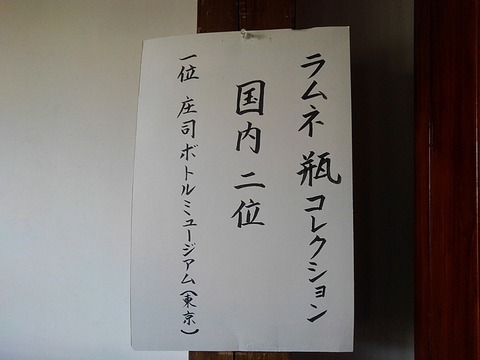 ラムネ瓶コレクション
国内二位
一位 庄司ボトルミュージアム(東京)